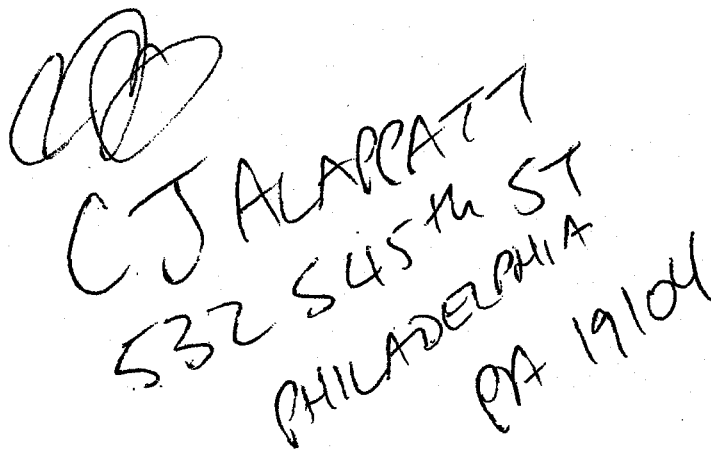 CJ ALAPPATT
532 S 45th ST
PHILADELPHIA
PA 19104